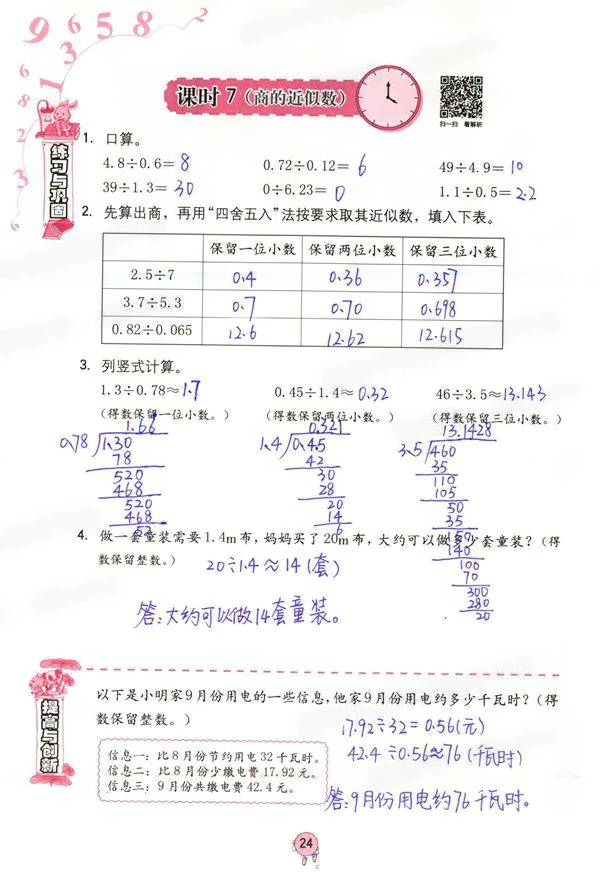 9 6 5 8 2
1
3
8
6
8
2
3
课时 7（商的近似数）
扫一扫 看解析
练习与巩固
1. 口算。
4.8÷0.6= 8 0.72÷0.12= 6 49÷4.9= 10
39÷1.3= 30 0÷6.23= 0 1.1÷0.5= 2.2
2. 先算出商，再用“四舍五入”法按要求取其近似数，填入下表。
保留一位小数 保留两位小数 保留三位小数
2.5÷7 0.4 0.36 0.357
3.7÷5.3 0.7 0.70 0.698
0.82÷0.065 12.6 12.62 12.615
3. 列竖式计算。
1.3÷0.78≈ 1.7 0.45÷1.4≈ 0.32 46÷3.5≈ 13.143
（得数保留一位小数。） （得数保留两位小数。） （得数保留三位小数。）
1.66
0.78 1.30
78
520
468
520
468
52
0.321
1.4 0.4.5
42
30
28
20
14
6
13.1428
3.5 460
35
110
105
50
35
150
140
100
70
300
280
20
4. 做一套童装需要1.4m布，妈妈买了20m布，大约可以做多少套童装？（得
数保留整数。） 20÷1.4≈14(套)
答：大约可以做14套童装。
提高与创新
以下是小明家9月份用电的一些信息，他家9月份用电约多少千瓦时？（得
数保留整数。）
17.92÷32=0.56(元)
42.4÷0.56≈76(千瓦时)
信息一：比8月份节约用电32千瓦时。
信息二：比8月份少缴电费17.92元。
信息三：9月份共缴电费42.4元。
答：9月份用电约76千瓦时。
24